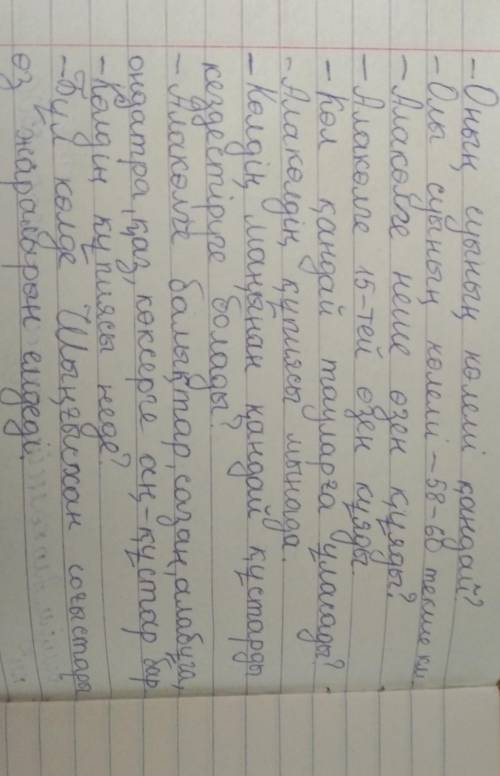 - Оның суының көлемі қандай?
- Олы суының көлемі - 58-60 текше км.
- Алакөлге неше өзен құяды?
- Алакөлге 15-тей өзен құяды.
- Көл қандай тауларға ұласады?
- Алакөлдің құпиясы мынада.
- Көлдің маңынан қандай құстарды
кездестіруге болады?
- Алакөлге балықтар, сазан, алабұға,
ондатра, қаз, көксерге аң-құстар бар
- Көлдің құпиясы неде?
- Бұл көлде Шыңғысхан соғыстары
өз жараларын емдеді.